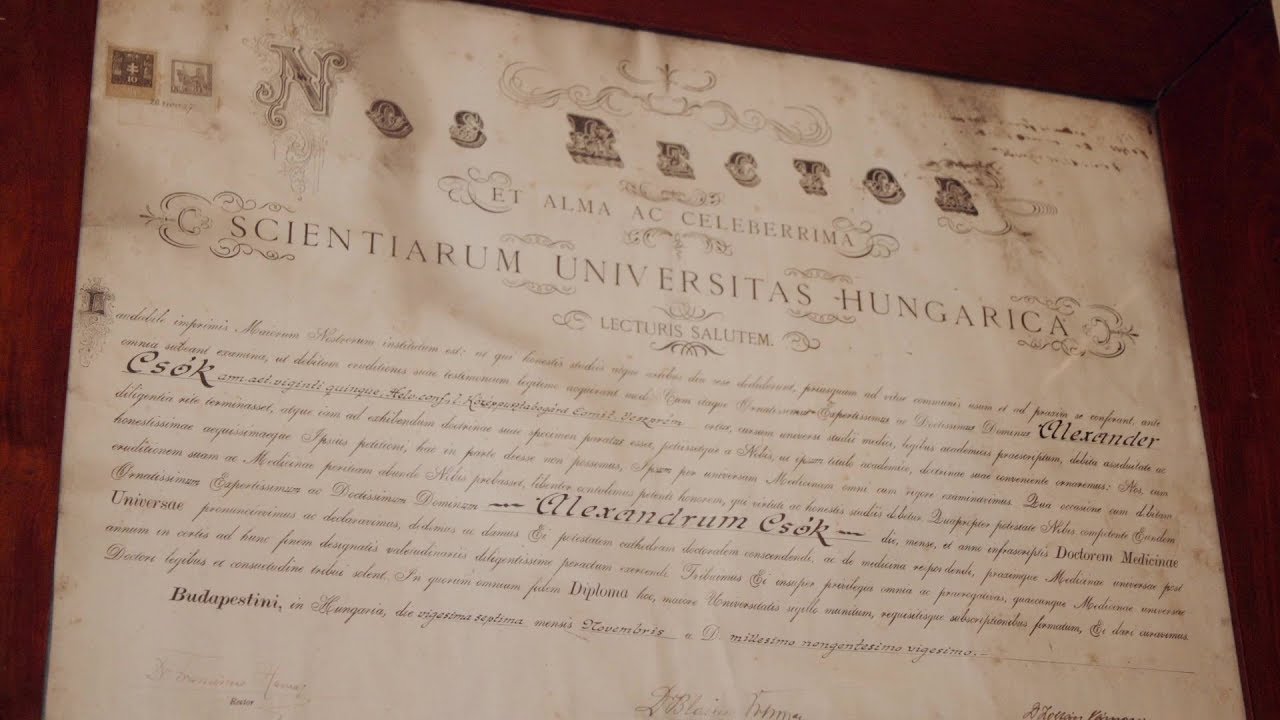 10
NOS RECTOR
ET ALMA AC CELEBERRIMA
SCIENTIARUM UNIVERSITAS HUNGARICA
LECTURIS SALUTEM.
Laudabile imprimis Maiorum Nostrorum institutum est: ut qui honestis studiis atque artibus diu sese dediderunt, priusquam ad vitae communis usum et ad praxim se conferant, ante
omnia subeant examina, ut debitum eruditionis suae testimonium legitime acquirant Cum itaque Ornatissimus Expertissimus ac Doctissimus Dominus Alexander
Csók ann. aet. viginti quinque, Helv. conf., Comit. Veszprém ortus, cursum universi studii medici, legibus academicis praescriptum, debita assiduitate ac
diligentia rite terminasset, atque iam ad exhibendum doctrinae suae specimen paratus esset, petiissetque a Nobis, ut ipsum titulo academico, doctrinae suae conveniente ornaremus: Nos, cum
honestissimae aequissimaeque Ipsius petitioni, hac in parte deesse non possemus, Ipsum per universam Medicinam omni cum rigore examinavimus. Qua occasione cum debitam
eruditionem suam ac Medicinae peritiam abunde Nobis probasset, libenter contulimus petenti honorem, qui virtute ac honestis studiis debetur. Quapropter potestate Nobis competente Eundem
Ornatissimum Expertissimum ac Doctissimum Dominum Alexandrum Csók die, mense, et anno infrascriptis Doctorem Medicinae
Universae pronunciavimus ac declaravimus, dedimus ac damus Ei potestatem cathedram doctoralem conscendendi, ac de medicina respondendi, praximque Medicinae universae post
annum in certis ad hunc finem designatis valetudinariis diligentissime peractum exercendi. Tribuimus Ei insuper privilegia omnia ac praerogativas, quaecunque Medicinae universae
Doctori legibus et consuetudine tribui solent. In quorum omnium fidem Diploma hoc, maiore Universitatis sigillo munitum, requisitisque subscriptionibus firmatum, Ei dari curavimus.
Budapestini, in Hungaria, die vigesima septima mensis Novembris a D. millesimo nongentesimo vigesimo.
Rector